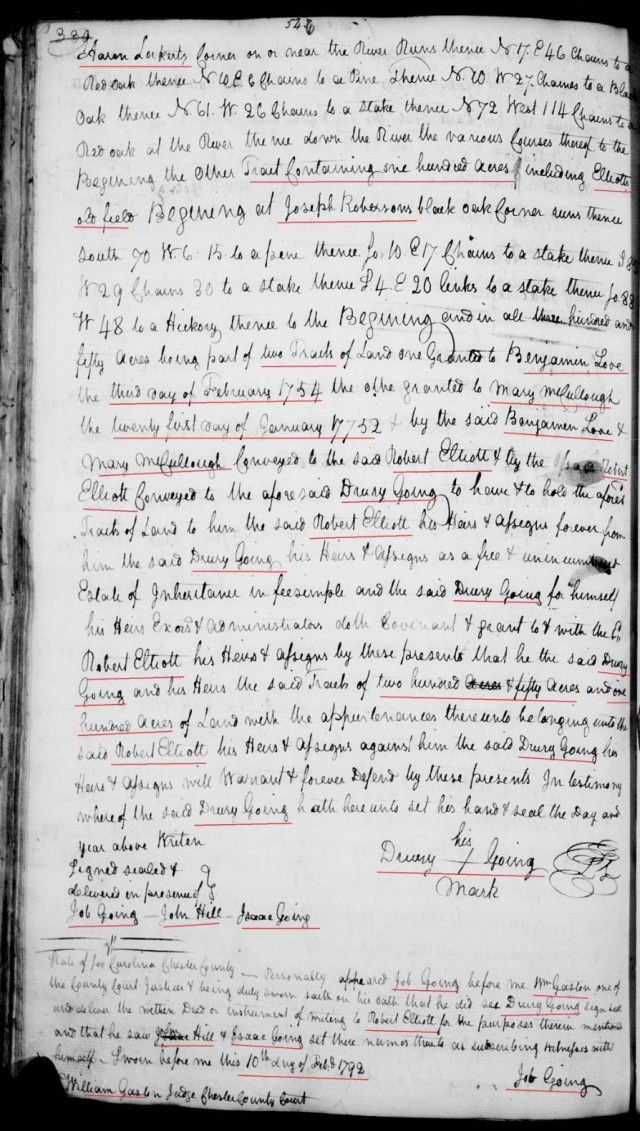 389
546
Aaron Lockerts Corner on or near the River Runs thence N 17. E 46 Chains to a
Red oak thence N 10. E 6 Chains to a Pine Thence N. 70. W 27 Chains to a Black
Oak thence N. 61. W. 26 Chains to a Stake thence N 72 West 114 Chains to a
Red oak at the River thence down the River the various Courses thereof to the
Begining the Other Tract Containing one hundred Acres including Elliotts
old field Begining at Joseph Robersons black oak Corner runs thence
South 70 W 6. 15 to a pine thence So. 10. E 17 Chains to a stake thence S 80
W 29 Chains 30 to a stake thence S 4. E 20 links to a stake thence So. 88
W 48 to a Hickory thence to the Begining and in all three hundred and
fifty Acres being part of two Tracts of Land one Granted to Benjamin Love
the third day of February 1754 the othe granted to Mary McCullough
the twenty first day of January 17752 & by the said Benjamen Love &
Mary McCullough Conveyed to the said Robert Elliott & by the Robert
Elliott Conveyed to the aforesaid Drury Going to have & to hold the afores
Tracts of Land to him the said Robert Elliott his Heirs & Assigns forever from
him the said Drury Going his Heirs & Assigns as a free & unincumbent
Estate of Inheritance in feesimple and the said Drury Going for himself
his Heirs Exors & administrators doth Covenant & grant to & with the Sd
Robert Elliott his Heirs & Assigns by these presents that he the said Drury
Going and his Heirs the said Tracts of two hundred Acres & fifty Acres and one
hundred Acres of Land with the appurtenances thereunto belonging unto the
said Robert Elliott his Heirs & Assigns against him the said Drury Going his
Heirs & Assigns will Warrant & forever Defend by these presents In testimony
whereof the said Drury Going hath hereunto set his hand & seal the Day and
year above Writen
Signed sealed &
delivered in presence of
Job Going - John Hill - Isaac Going
his
Drury Going
Mark
State of So Carolina Chester County - Personally appeared Job Going before me Wm Gaston one of
the County Court Justices & being duly sworn saith on his oath that he did see Drury Going sign seal
and deliver the within Deed or instrument of writing to Robert Elliott for the purposes therein mentioned
and that he saw Hill & Isaac Going set there names thereto as subscribing witnesses with
himself - Sworn before me this 10th day of Feby 1792
Job Going
William Gaston Judge Chester County Court